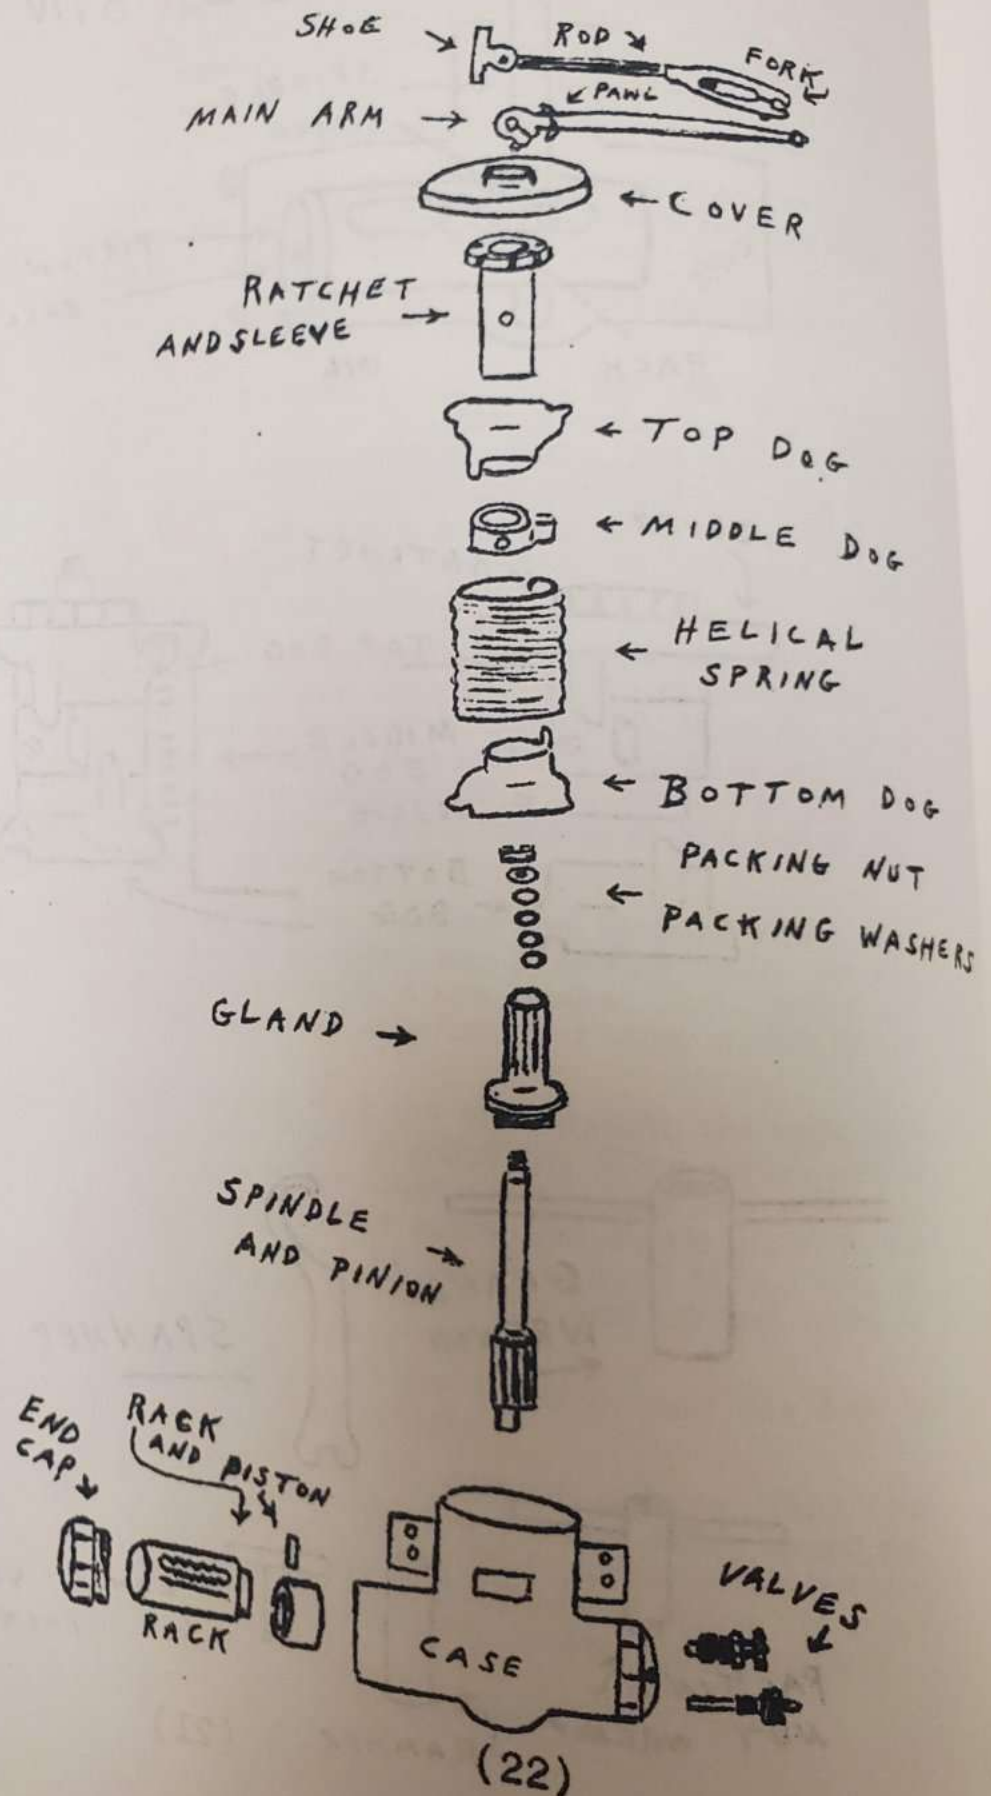 SHOE
ROD
FORK
PAWL
MAIN ARM
COVER
RATCHET
AND SLEEVE
TOP DOG
MIDDLE DOG
HELICAL
SPRING
BOTTOM DOG
PACKING NUT
PACKING WASHERS
GLAND
SPINDLE
AND PINION
END
CAP
RACK
AND PISTON
RACK
CASE
VALVES
(22)